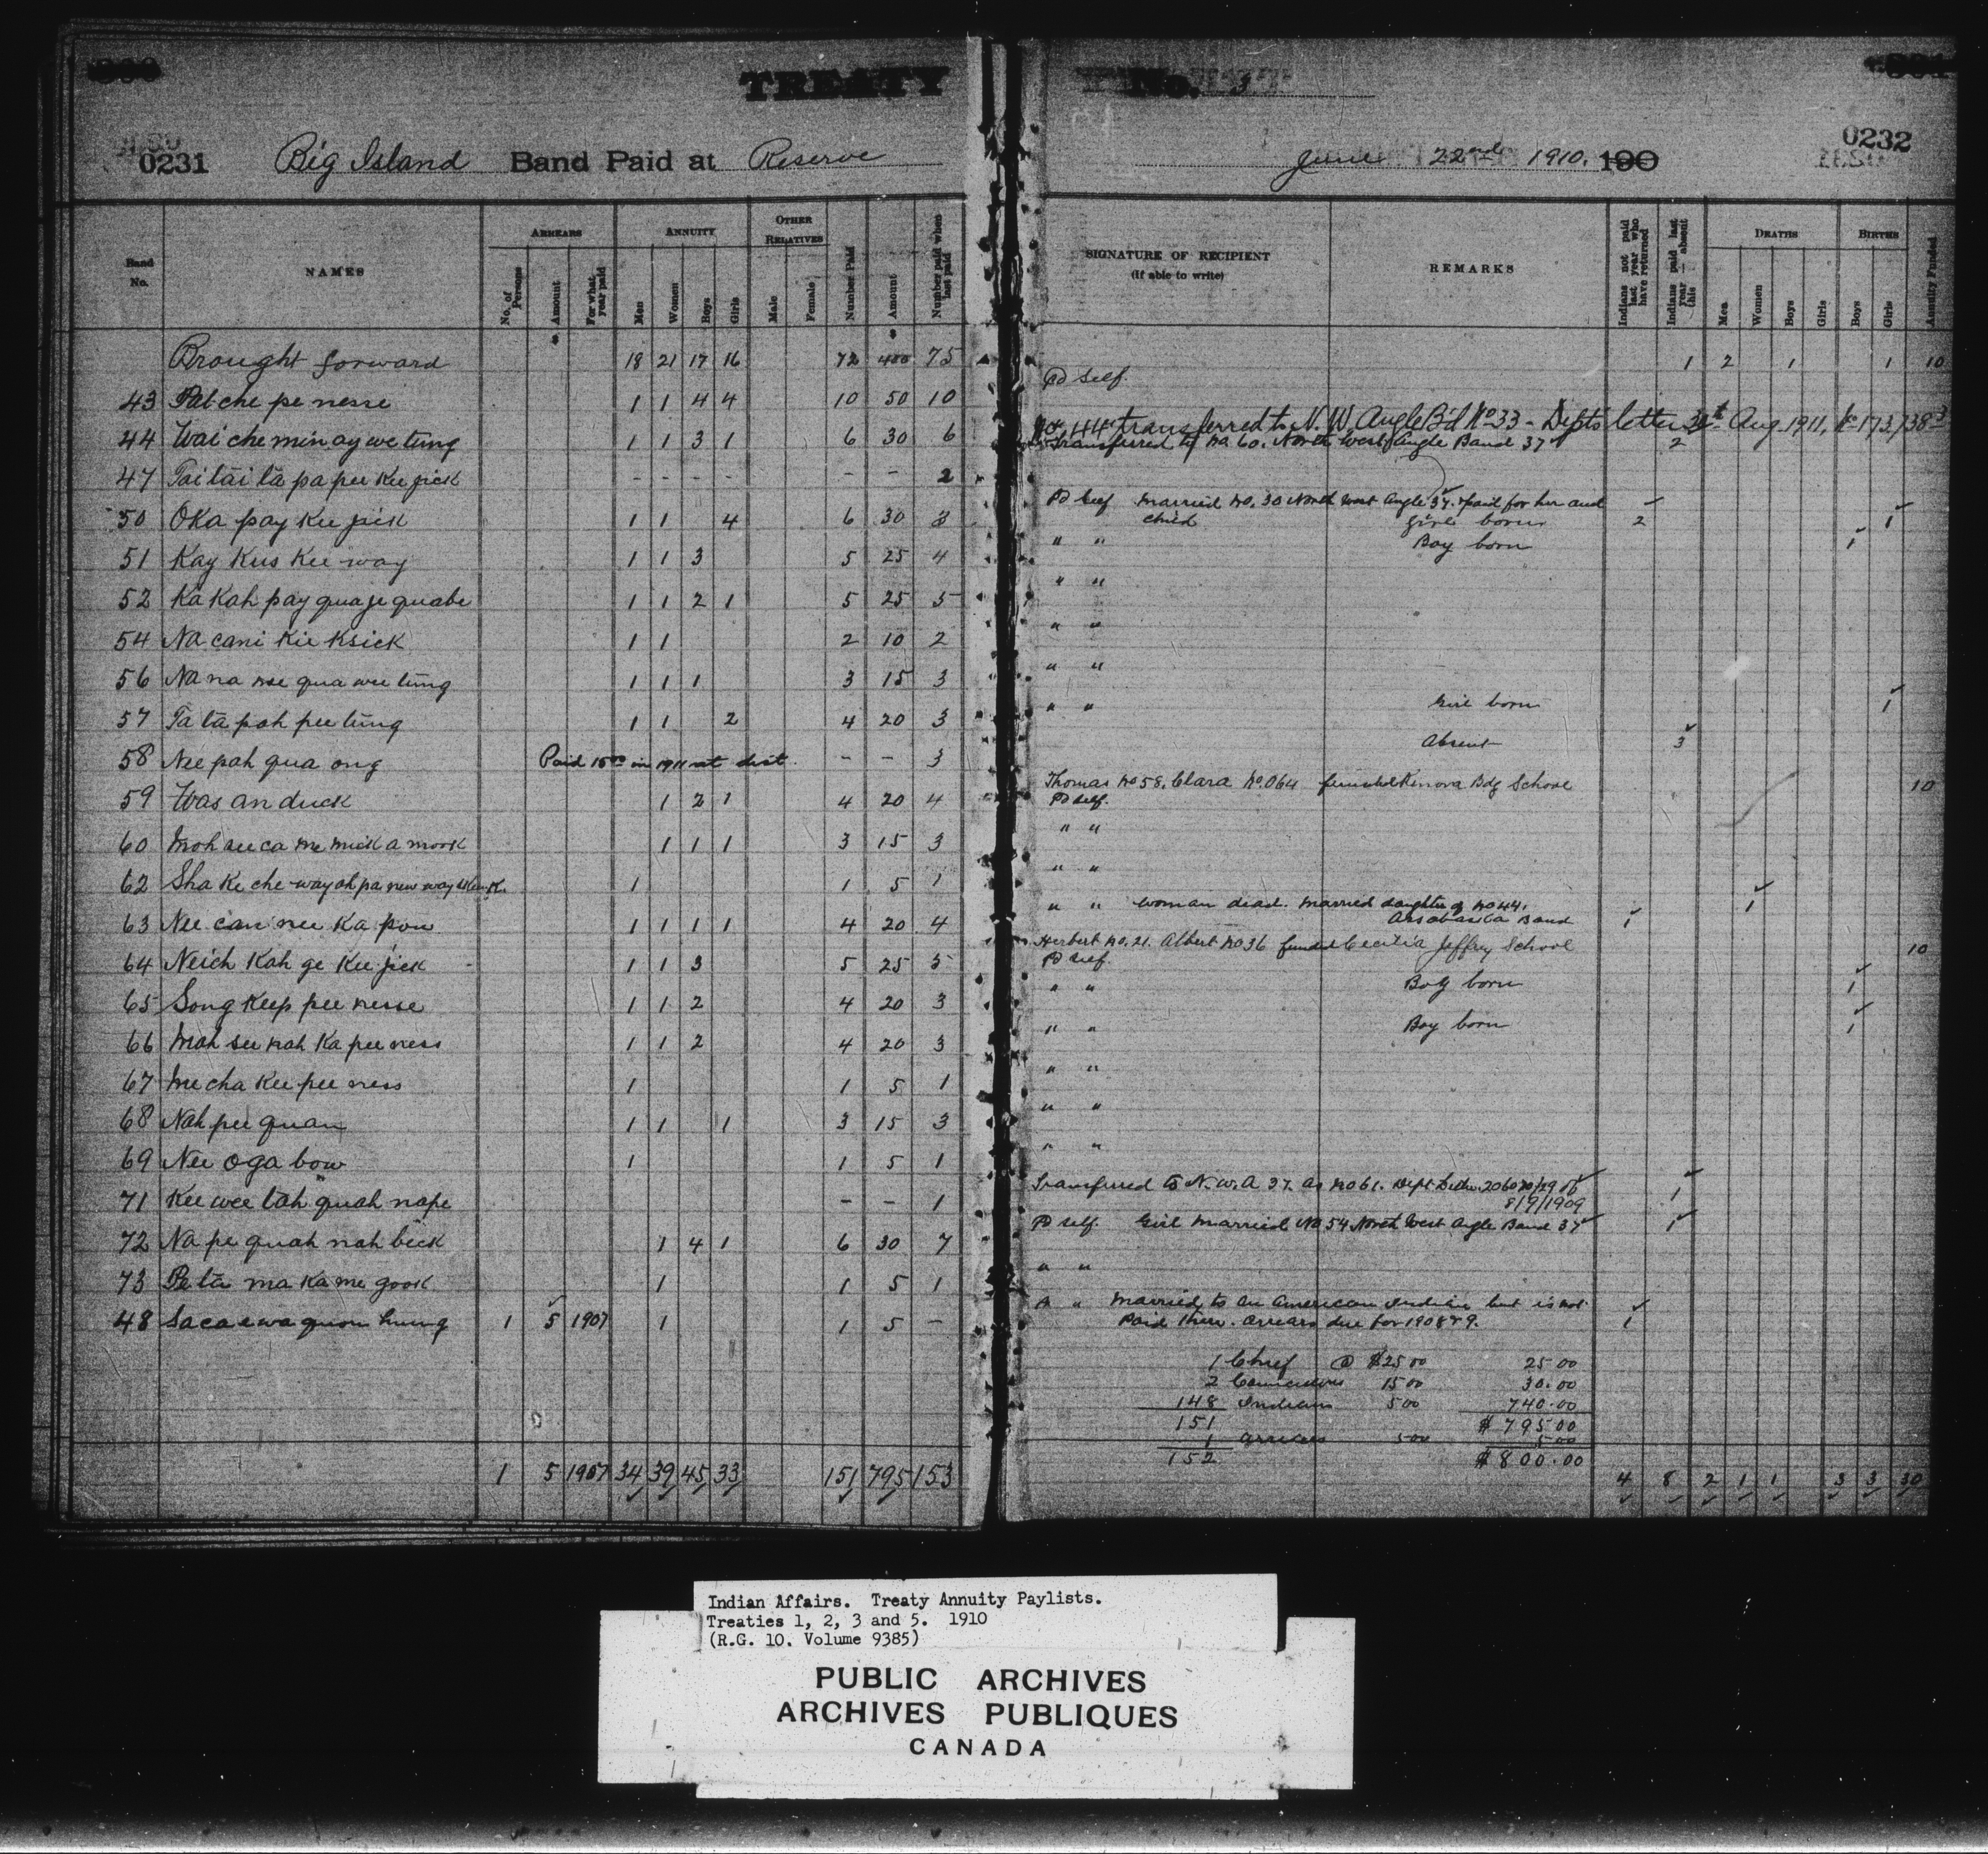 TREATY No. 3
0231 Big Island Band Paid at Reserve June 22nd 1910. 190 0232
Band No. NAMES ARREARS ANNUITY OTHER RELATIVES Number Paid Amount Number paid when last paid
No. of Persons Amount For what year paid Men Women Boys Girls Male Female
SIGNATURE OF RECIPIENT (If able to write) REMARKS Indians not paid last year who have returned Indians paid last year absent this DEATHS BIRTHS Annuity Funded
Men Women Boys Girls Boys Girls
Brought forward 18 21 17 16 72 400 75 1 2 1 1 10
43 Pat che pe nesse 1 1 4 4 10 50 10 Pd Self.
No. 44 transferred to N. W. Angle B'd No 33 - Depts letter 31st Aug. 1911, No 173,738-3
44 Wai che min ay we tung 1 1 3 1 6 30 6
47 Tai tai ta pa pee Kee jick - - - - - - 2 Transferred to No. 60. North West Angle Band 37 2
50 Oka pay Kee jick 1 1 4 6 30 3 Pd Self Married No. 30 North West Angle 37. paid for her and
child Girl born 2 1
51 Kay Kus Kee way 1 1 3 5 25 4 " " Boy born 1
52 Ka Kah pay qua je quabe 1 1 2 1 5 25 5 " "
54 Na cani Kie Ksick 1 1 2 10 2 " "
56 Na na nse qua wee tung 1 1 1 3 15 3 " "
57 Ta ta pah pee tung 1 1 2 4 20 3 " " Girl born 1
58 Nee pah qua ong Paid 15.00 in 1911 at dist. - - 3 Absent 3
Thomas No 58. Clara No. 064 funded Kenora Bdg School 10
59 Was an duck 1 2 1 4 20 4 Pd Self.
60 Moh see ca me mick a mook 1 1 1 3 15 3 " "
62 Sha Ke che way ah pa new way 1 1 5 1 " "
63 Nee can nee Ka pow 1 1 1 1 4 20 4 " " Woman dead. Married daughter of No 44.
Assabaska Band 1 1
Herbert No. 21. Albert No 36 funded Cecilia Jeffrey School 10
64 Neich Kah ge Kee jick 1 1 3 5 25 5 Pd Self.
65 Song Keep pee nesse 1 1 2 4 20 3 " " Boy born 1
66 Mah see nah Ka pee ness 1 1 2 4 20 3 " " Boy born 1
67 Me cha Kee pee ness 1 1 5 1 " "
68 Nah pee quan 1 1 1 3 15 3 " "
69 Nee oga bow 1 1 5 1 " "
71 Kee wee tah quah nape - - 1 Transferred to N.W.A 37. as No 61. Dept Letter
8/9/1909 1
72 Na pe quah nah beek 1 4 1 6 30 7 Pd Self. Girl Married No 54 North West Angle Band 37 1
73 Pe tu ma Ka me gook 1 1 5 1 " "
48 Saca e wa quon hung 1 5 1907 1 1 5 - " " Married to an American Indian but is not
Paid there. Arrears due for 1908 & 9. 1
1 Chief @ $25 00 25 00
2 Councillors 15 00 30.00
148 Indians 5 00 740.00
151 $795 00
1 Arrears 5 00 5 00
152 $800.00
1 5 1907 34 39 45 33 151 795 153 4 8 2 1 1 3 3 30
Indian Affairs. Treaty Annuity Paylists.
Treaties 1, 2, 3 and 5. 1910
(R.G. 10. Volume 9385)
PUBLIC ARCHIVES
ARCHIVES PUBLIQUES
CANADA